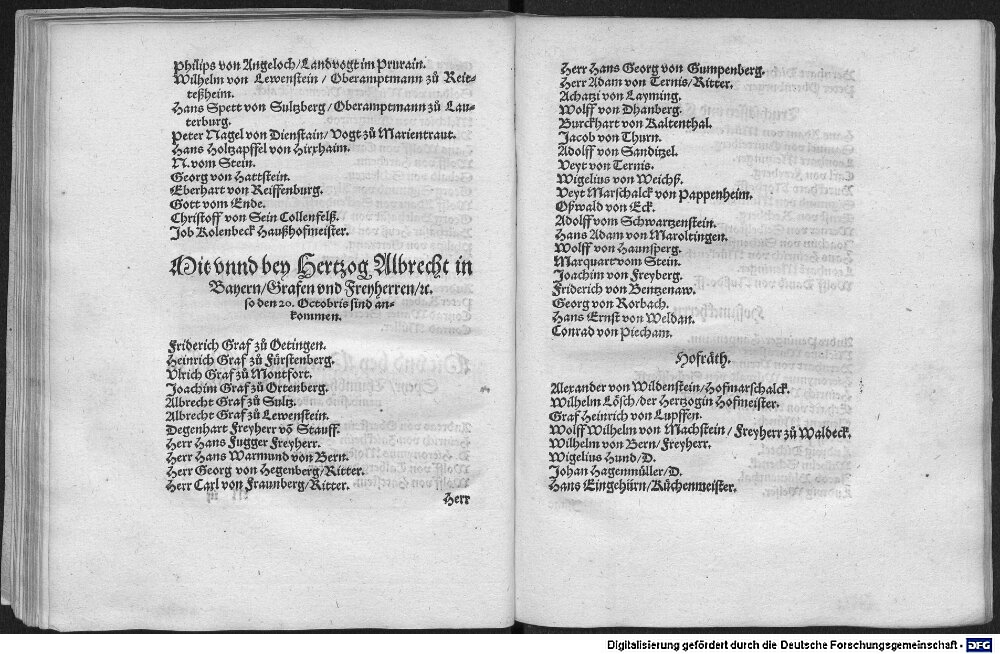 Philips von Angeloch/Landvogt im Prurain.
Wilhelm von Lewenstein / Oberamptmann zů Reit-
teßheim.
Hans Spett von Sulzberg/Oberamptmann zů Lau-
terburg.
Peter Nagel von Dienstain/Vogt zů Marientraut.
Hans Holtzapffel von Hirxhaim.
N. vom Stein.
Georg von Hattstein.
Eberhart von Reiffenburg.
Gott vom Ende.
Christoff von Sein Collenfelß.
Job Kolenbeck Haußhofmeister.
Mit vnnd bey Hertzog Albrecht in
Bayern/Grafen vnd Freyherren/ꝛc.
so den 20. Octobris sind an-
kommen.
Friderich Graf zů Oetingen.
Heinrich Graf zů Fürstenberg.
Vlrich Graf zů Montfort.
Joachim Graf zů Ortenberg.
Albrecht Graf zů Sulz.
Albrecht Graf zů Lewenstein.
Degenhart Freyherr võ Stauff.
Herr Hans Fugger Freyherr.
Herr Hans Warmund von Bern.
Herr Georg von Hegenberg/Ritter.
Herr Carl von Fraunberg/Ritter.
Herr
Herr Hans Georg von Gumpenberg.
Herr Adam von Ternis/Ritter.
Achatzi von Layming.
Wolff von Dhanberg.
Burckhart von Kaltenthal.
Jacob von Thurn.
Adolff von Sanditzel.
Veyt von Ternis.
Wigelius von Weichß.
Veyt Marschalck von Pappenheim.
Oßwald von Eck.
Adolff vom Schwartzenstein.
Hans Adam von Maroltingen.
Wolff von Haunsperg.
Marquart vom Stein.
Joachim von Freyberg.
Friderich von Bentzenaw.
Georg von Rorbach.
Hans Ernst von Weldan.
Conrad von Piecham.
Hofräth.
Alexander von Wildenstein/Hofmarschalck.
Wilhelm Lösch/der Hertzogin Hofmeister.
Graf Heinrich von Lupffen.
Wolff Wilhelm von Machstein / Freyherr zů Waldeck.
Wilhelm von Bern/Freyherr.
Wigelius Hund/D.
Johan Hagenmüller/D.
Hans Eingehürn/Küchenmeister.
Digitalisierung gefördert durch die Deutsche Forschungsgemeinschaft - DFG